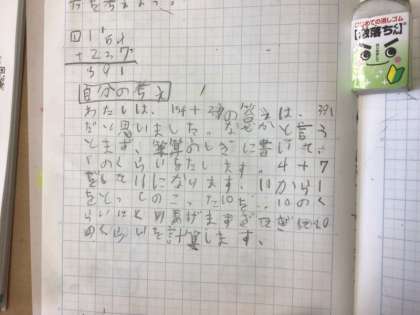 1154
+237
391
自分の考え
わたしは、154+237の答えは、391
だと思いました。なぜかと言う
とまず、筆算のしきに書いて、
1のくらいをたします。4+7
をして11になります。11から1
をとってのこった10を、10のく
らいにくり上げます。
のくらいを計算します。
はじめての消しゴム